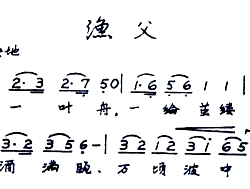 渔父
地
2·3 2·7 50 | 1·6 56 1 1 |
一 叶 舟,一 纶 茧 缕
3·2 35 6 - | 32 12 31 65
酒 满 瓯,万 顷 波 中